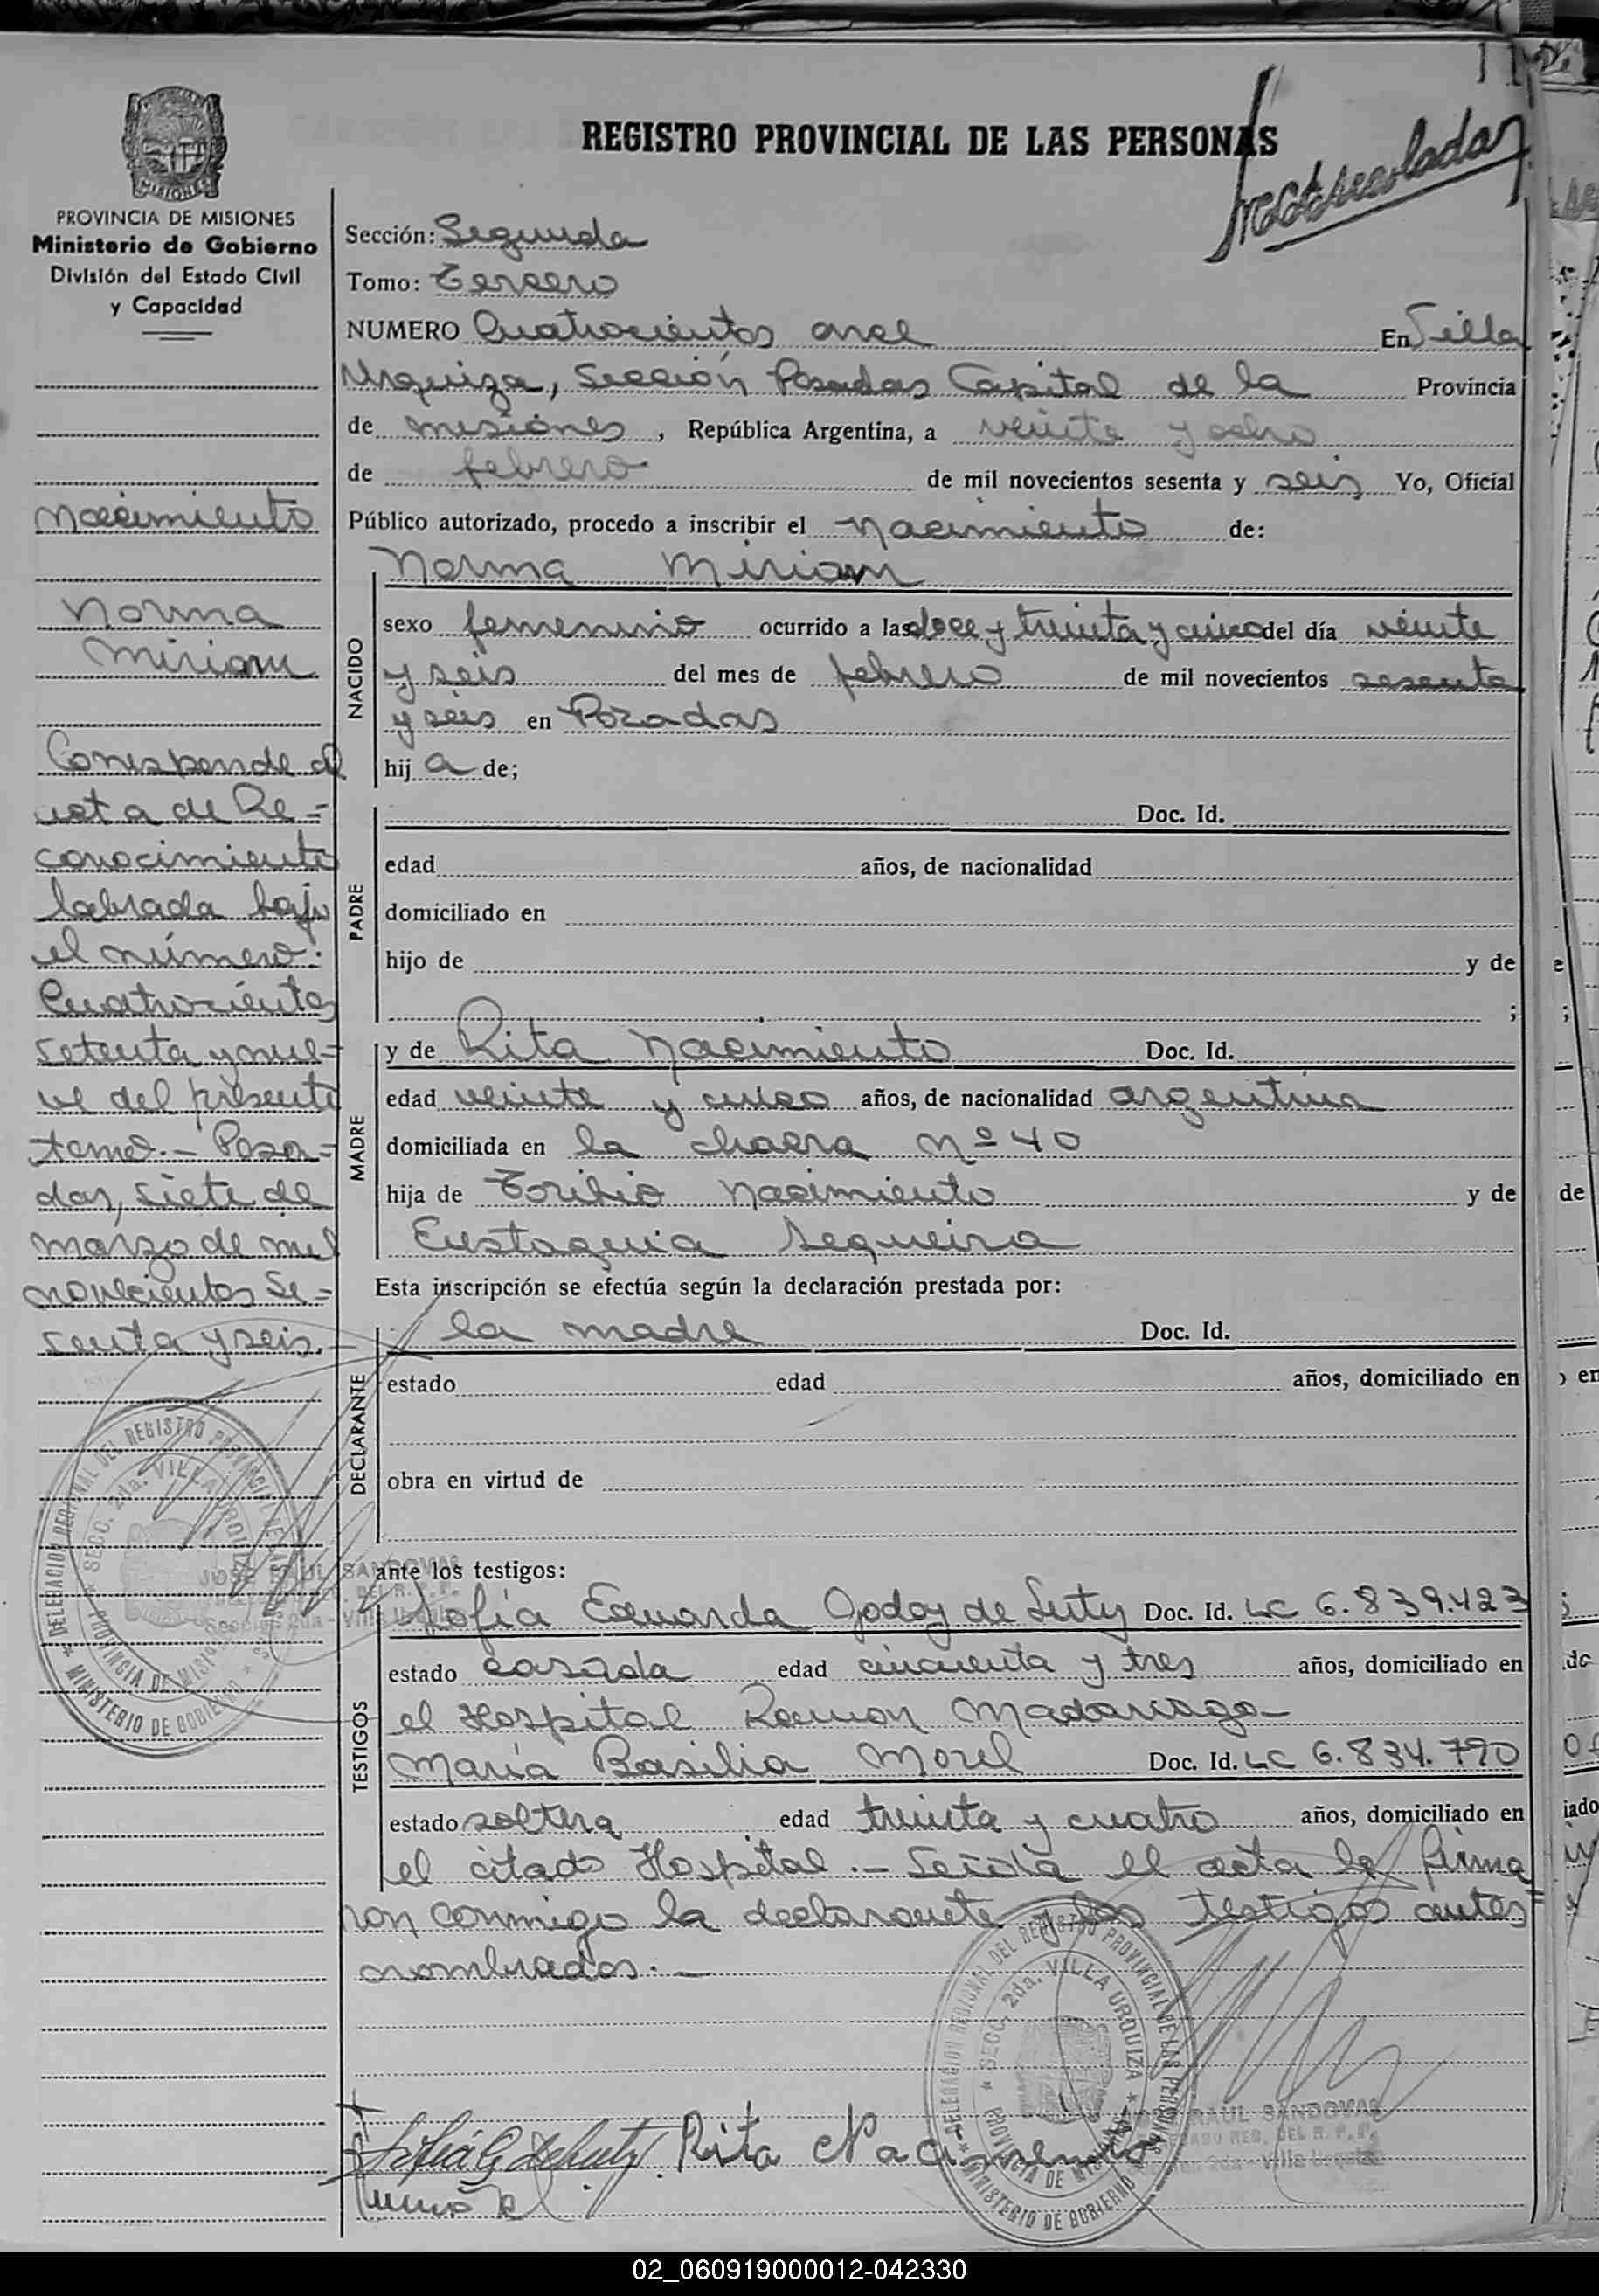 REGISTRO PROVINCIAL DE LAS PERSONAS
Matriculada
MISIONES
PROVINCIA DE MISIONES
Ministerio de Gobierno
División del Estado Civil
y Capacidad
Nacimiento
Norma
Miriam
Corresponde al
acta de Re-
conocimiento
labrada bajo
el número:
Cuatrocientos
setenta y nue-
ve del presente
tomo.- Posa-
das, siete de
marzo de mil
novecientos se-
senta y seis.
Sección: Segunda
Tomo: Tercero
NUMERO Cuatrocientos once En Villa
Urquiza, Sección Posadas Capital de la Provincia
de misiones, República Argentina, a veinte y ocho
de febrero de mil novecientos sesenta y seis Yo, Oficial
Público autorizado, procedo a inscribir el nacimiento de:
Norma Miriam
NACIDO
sexo femenino ocurrido a las doce y treinta y cinco del día veinte
y seis del mes de febrero de mil novecientos sesenta
y seis en Pozadas
hija de;
PADRE
Doc. Id.
edad años, de nacionalidad
domiciliado en
hijo de y de
;
MADRE
y de Rita Nacimiento Doc. Id.
edad veinte y cinco años, de nacionalidad argentina
domiciliada en la chacra Nº 40
hija de Toribio Nacimiento y de
Eustaquia Sequeira
Esta inscripción se efectúa según la declaración prestada por:
DECLARANTE
la madre Doc. Id.
estado edad años, domiciliado en
obra en virtud de
ante los testigos:
TESTIGOS
Sofía Eduarda Godoy de Luty Doc. Id. LC 6.839.423
estado casada edad cincuenta y tres años, domiciliado en
el Hospital Ramon Madariaga-
María Basilia Morel Doc. Id. LC 6.834.790
estado soltera edad treinta y cuatro años, domiciliado en
el citado Hospital.- Leída el acta la firma
ron conmigo la declarante y los testigos antes
nombrados.-
DELEGACION REGIONAL DEL REGISTRO PROVINCIAL DE LAS PERSONAS
SECC. 2da. VILLA URQUIZA
PROVINCIA DE MISIONES
MINISTERIO DE GOBIERNO
JOSE RAUL SANDOVAL
DELEGACION REGIONAL DEL REGISTRO PROVINCIAL DE LAS PERSONAS
SECC. 2da. VILLA URQUIZA
PROVINCIA DE MISIONES
MINISTERIO DE GOBIERNO
RAUL SANDOVAL
REG. DEL R. P. P.
2da - Villa Urquiza
Rita Nacimiento
02_060919000012-042330